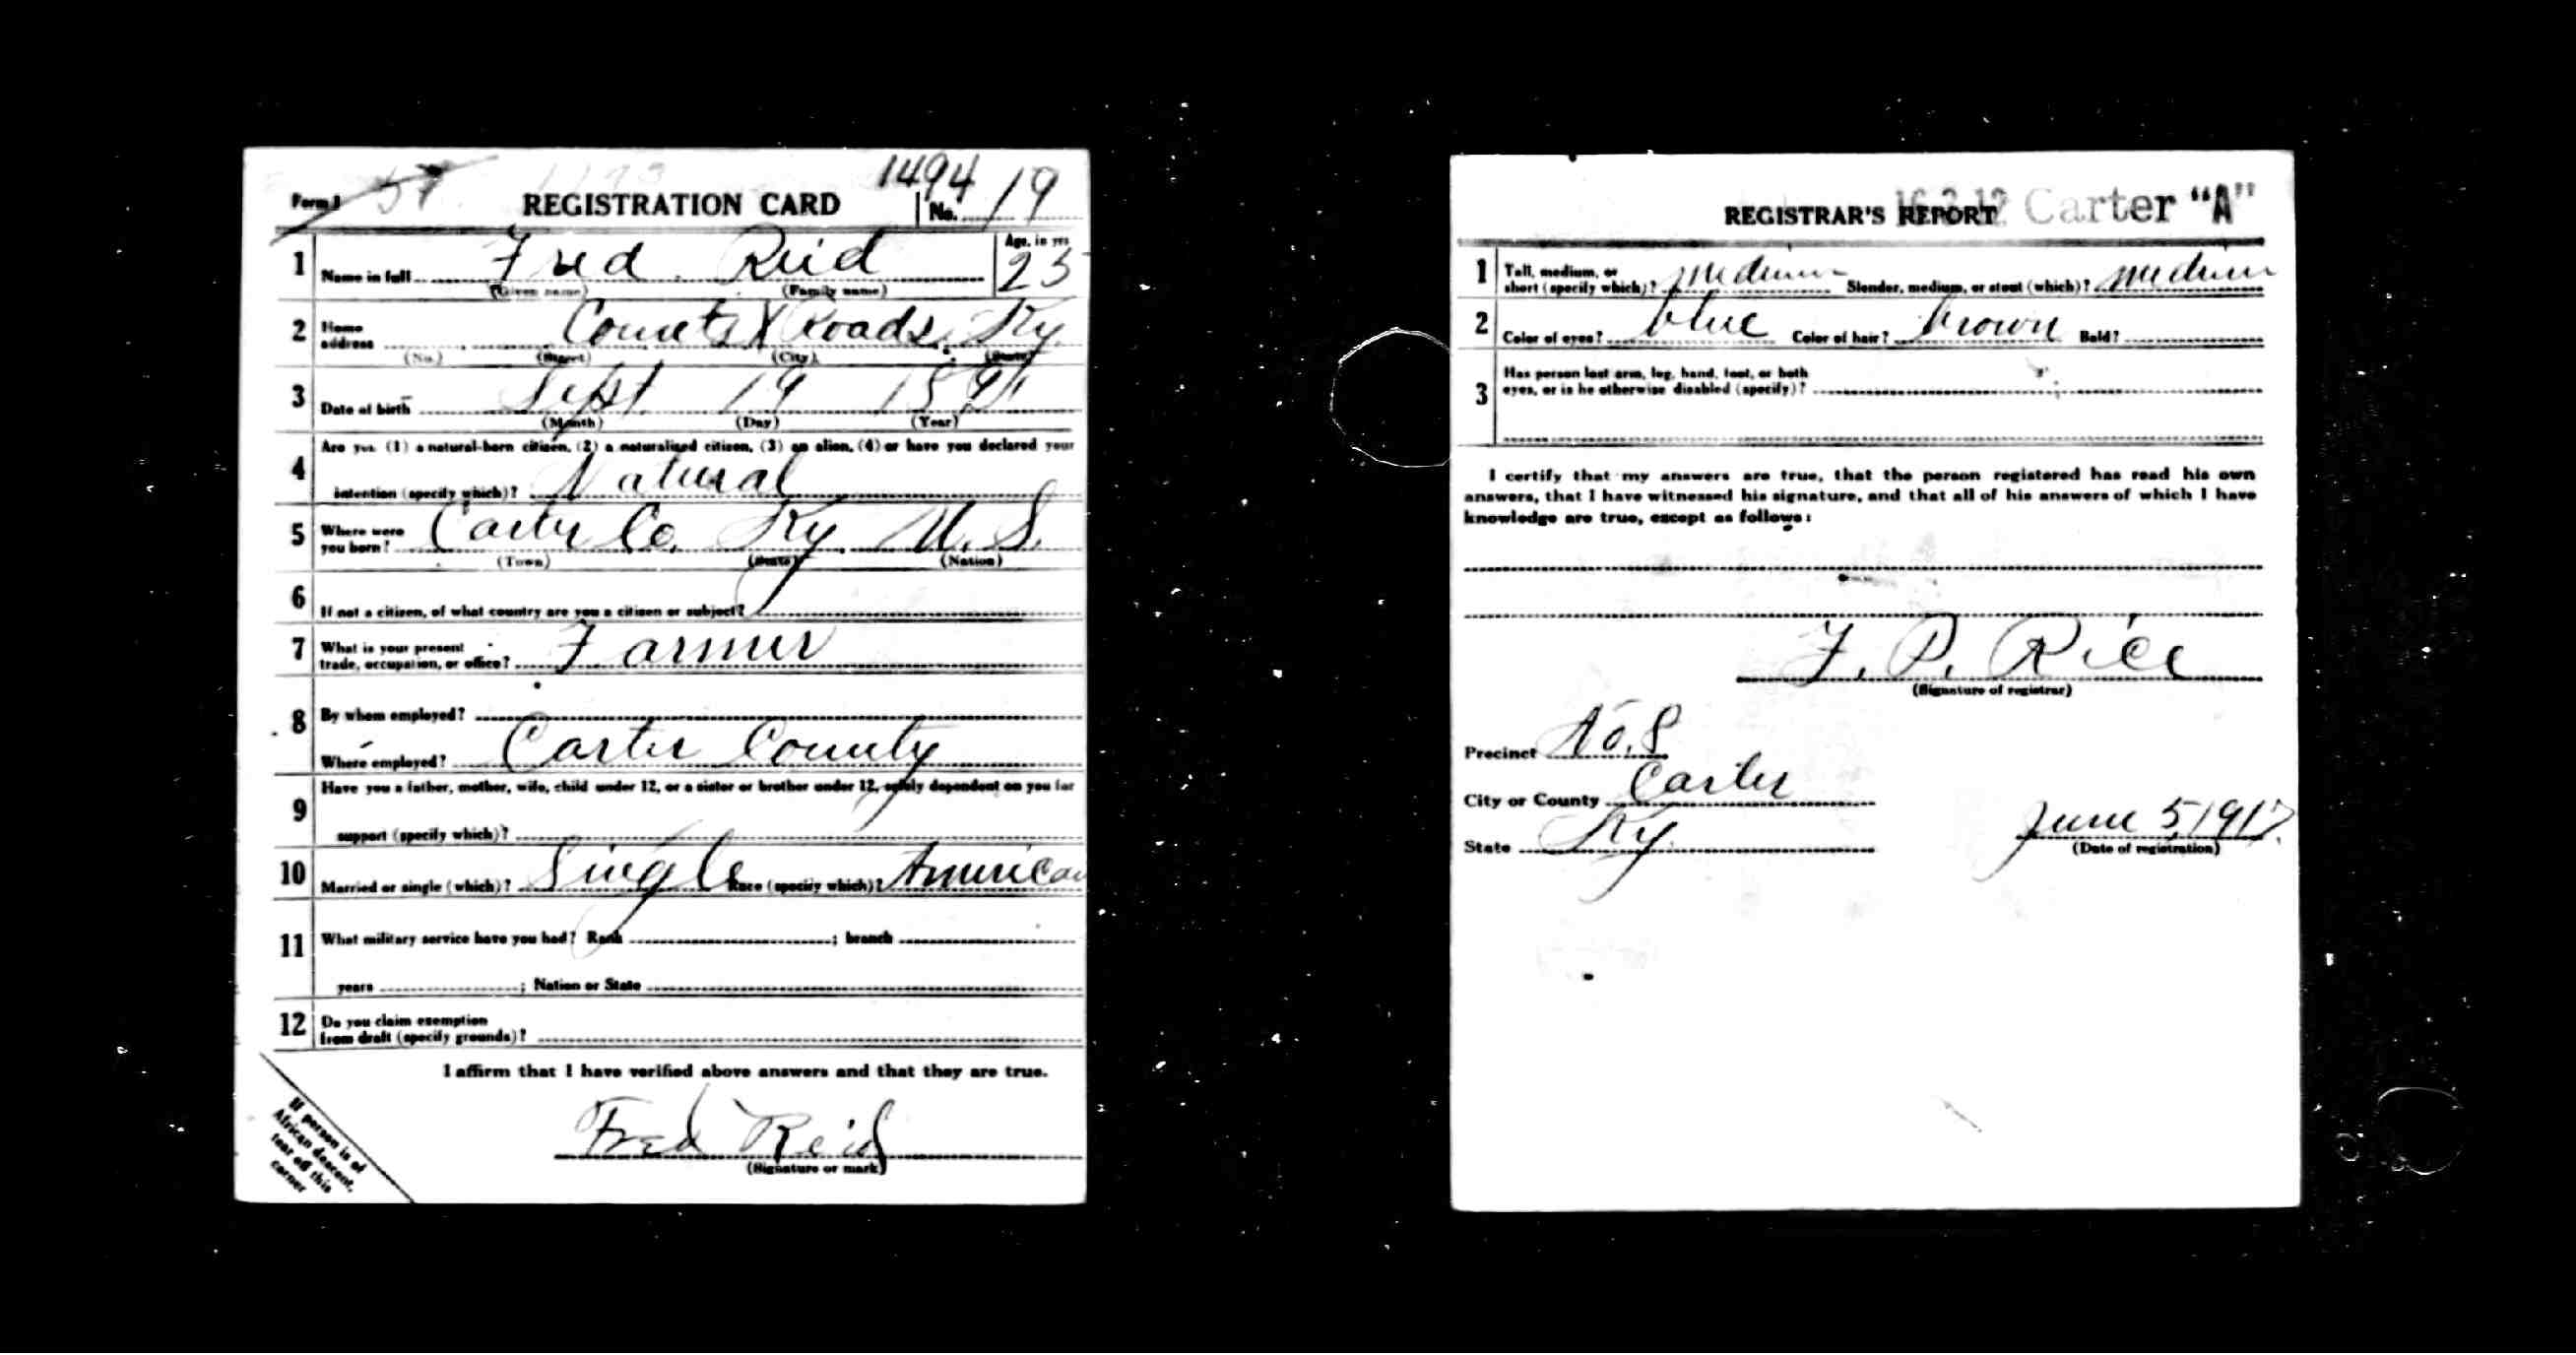 1494
Form 1 57 REGISTRATION CARD No. 19
1 Name in full Fred Reid Age, in yrs 25
(Given name) (Family name)
2 Home address Counts X Roads, Ky.
(No.) (Street) (City) (State)
3 Date of birth Sept 19 1891
(Month) (Day) (Year)
Are you (1) a natural-born citizen, (2) a naturalized citizen, (3) an alien, (4) or have you declared your
4 intention (specify which)? Natural
5 Where were you born? Carter Co. Ky. U. S.
(Town) (State) (Nation)
6 If not a citizen, of what country are you a citizen or subject?
7 What is your present
trade, occupation, or office? Farmer
8 By whom employed?
Where employed? Carter County
9 Have you a father, mother, wife, child under 12, or a sister or brother under 12, solely dependent on you for
support (specify which)?
10 Married or single (which)? Single Race (specify which)? American
11 What military service have you had? Rank ; branch
years ; Nation or State
12 Do you claim exemption
from draft (specify grounds)?
I affirm that I have verified above answers and that they are true.
Fred Reid
(Signature or mark)
If person is of
African descent,
tear off this
corner
REGISTRAR'S REPORT 16-3-12 Carter "A"
1 Tall, medium, or
short (specify which)? medium Slender, medium, or stout (which)? medium
2 Color of eyes? blue Color of hair? brown Bald?
3 Has person lost arm, leg, hand, foot, or both
eyes, or is he otherwise disabled (specify)?
I certify that my answers are true, that the person registered has read his own
answers, that I have witnessed his signature, and that all of his answers of which I have
knowledge are true, except as follows:
F. P. Rice
(Signature of registrar)
Precinct No. 8
City or County Carter
State Ky.
June 5, 1917.
(Date of registration)